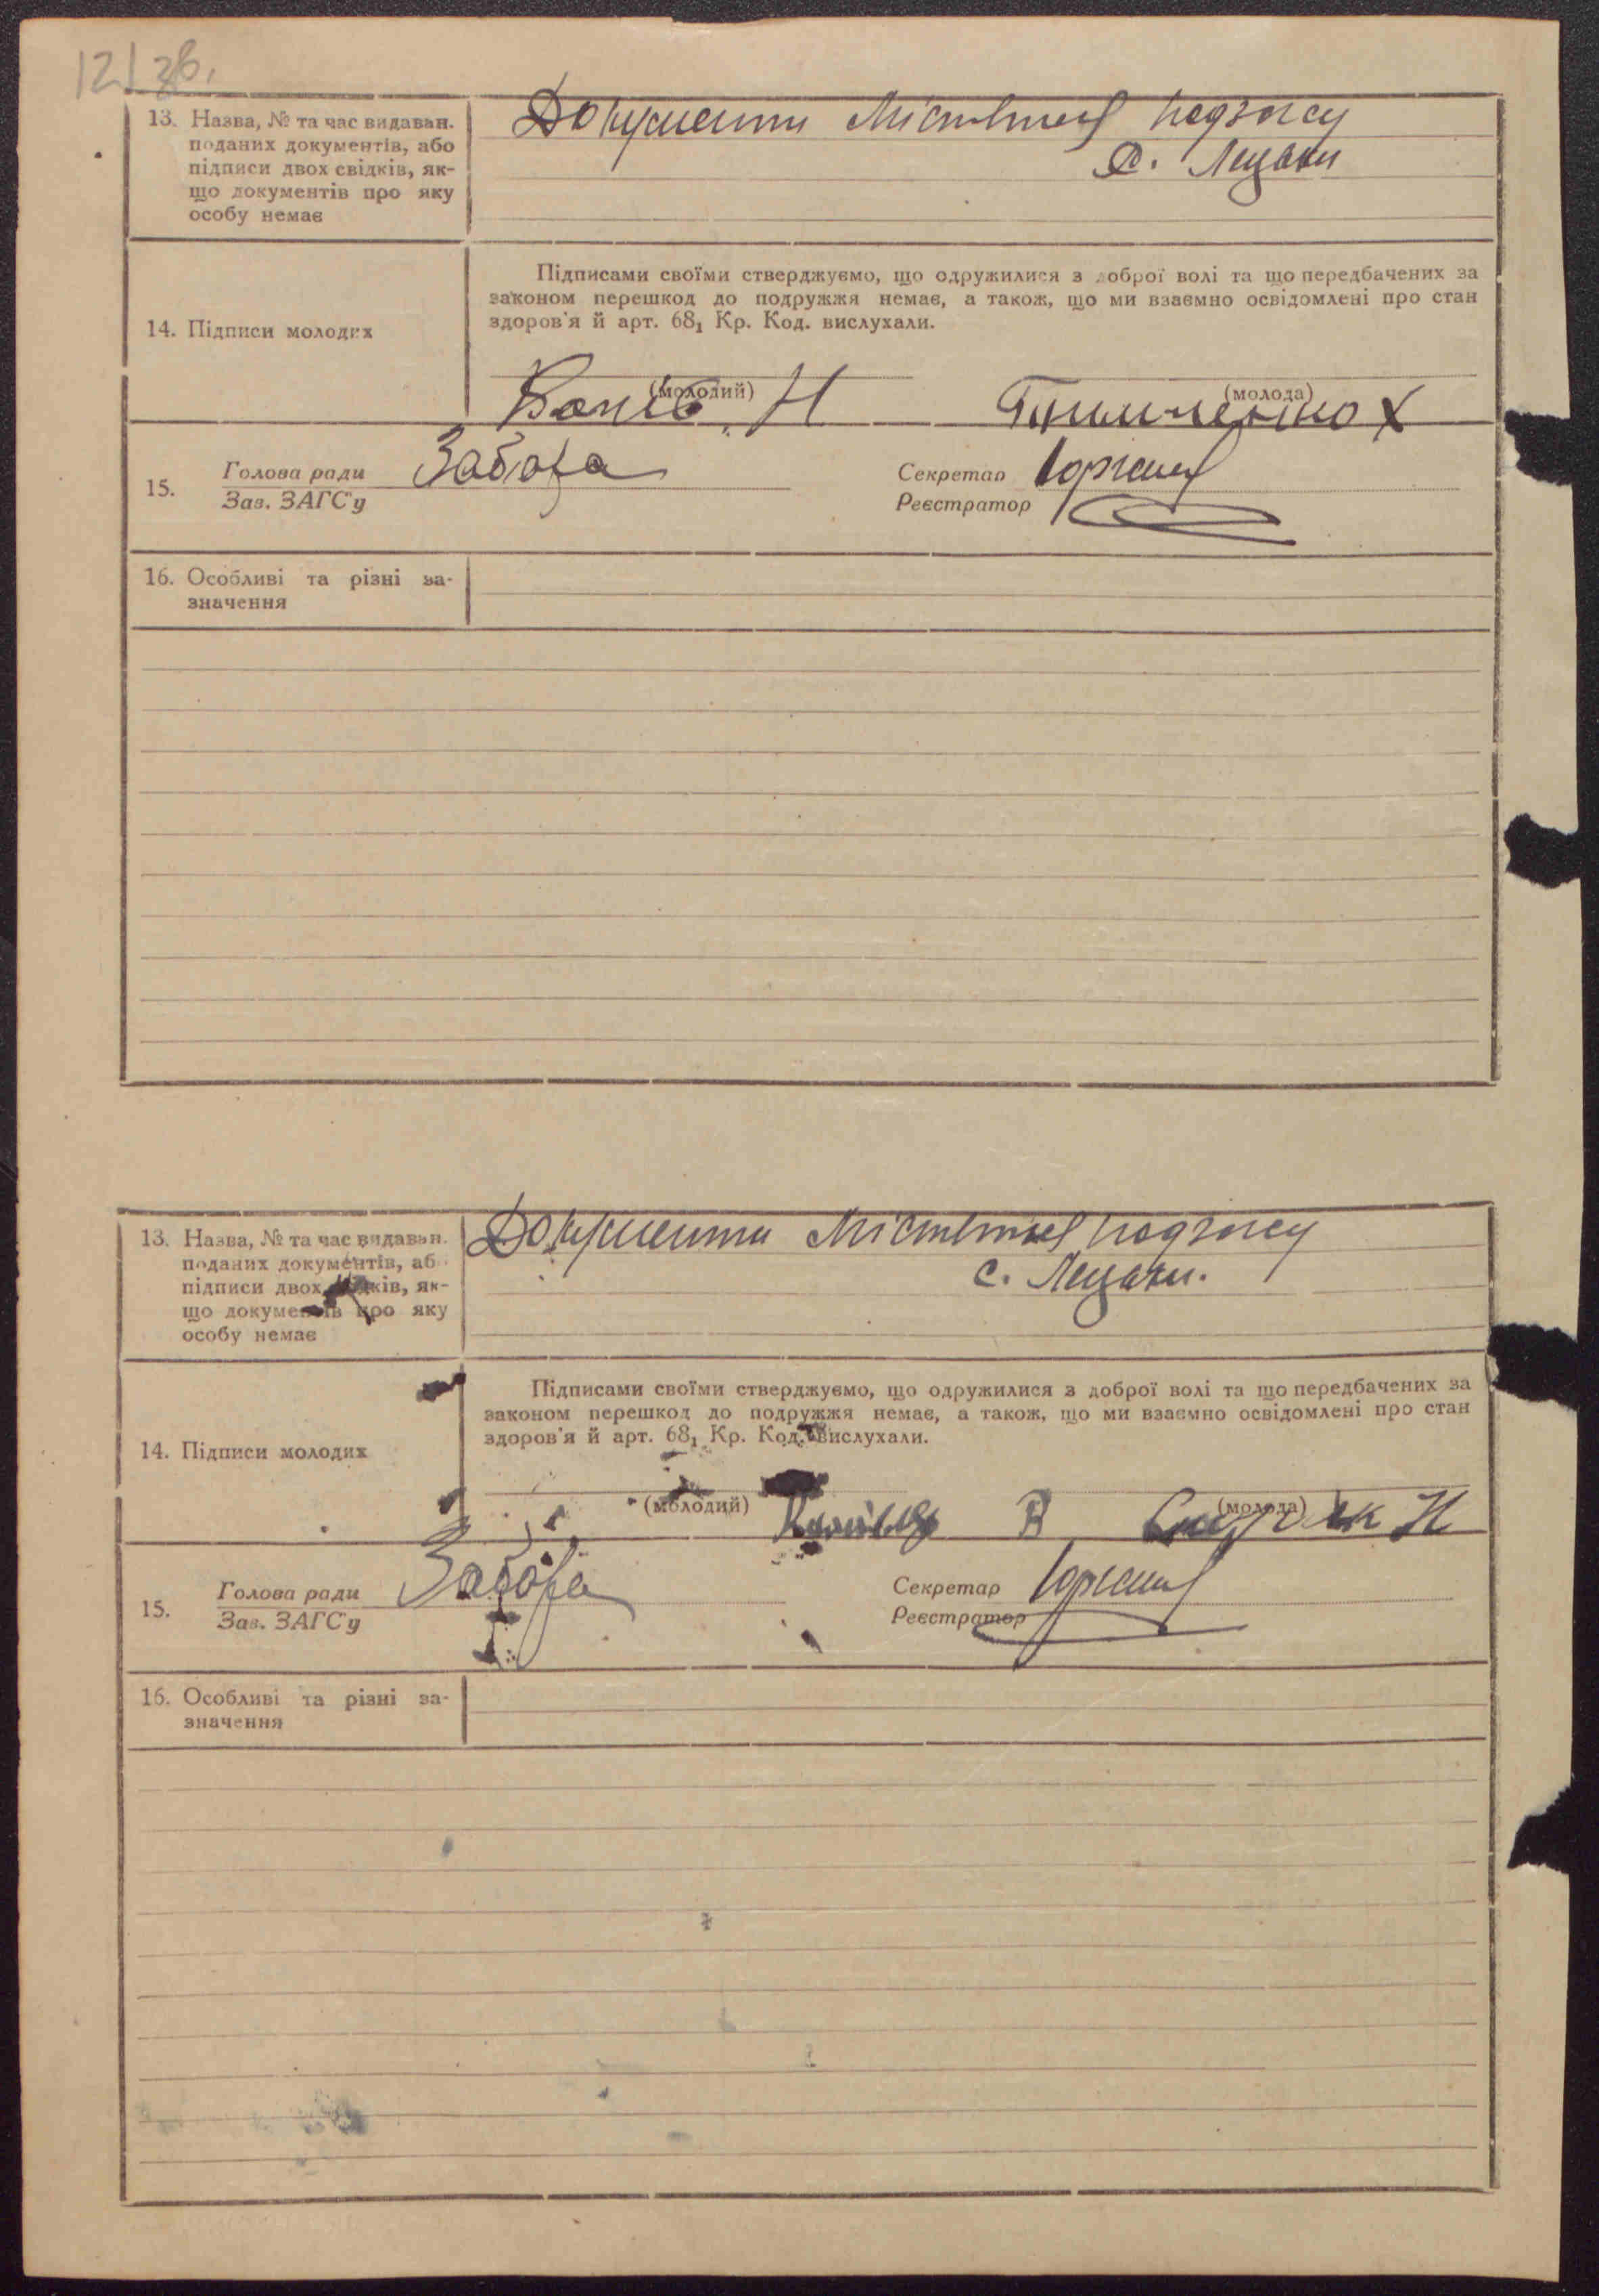 12 зв.
13. Назва, № та час видаван.
поданих документів, або
підписи двох свідків, як-
що документів про яку
особу немає
Документи
с.
14. Підписи молодих
Підписами своїми стверджуємо, що одружилися з доброї волі та що передбачених за
законом перешкод до подружжя немає, а також, що ми взаємно освідомлені про стан
здоров'я й арт. 68₁ Кр. Код. вислухали.
(молодий) (молода)
Н Х
15. Голова ради Забора Секретар
Зав. ЗАГС'у Реєстратор
16. Особливі та різні за-
значення
13. Назва, № та час видаван.
поданих документів, або
підписи двох свідків, як-
що документів про яку
особу немає
Документи
с.
14. Підписи молодих
Підписами своїми стверджуємо, що одружилися з доброї волі та що передбачених за
законом перешкод до подружжя немає, а також, що ми взаємно освідомлені про стан
здоров'я й арт. 68₁ Кр. Код. вислухали.
(молодий) (молода)
В Н
15. Голова ради Забора Секретар
Зав. ЗАГС'у Реєстратор
16. Особливі та різні за-
значення